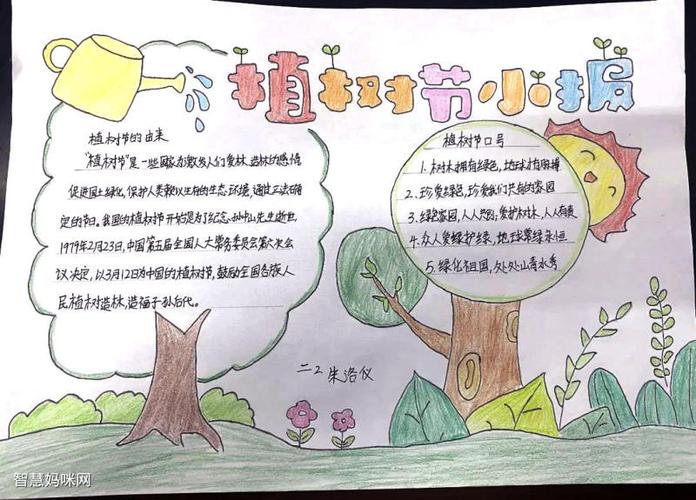 植树节小报
植树节的由来
"植树节"是一些国家为激发人们爱林、造林的感情
促进国土绿化,保护人类赖以生存的生态环境,通过立法确
定的节日。我国的植树节开始是为了纪念孙中山先生逝世,
1979年2月23日,中国第五届全国人大常务委员会第六次会
议决定,以3月12日为中国的植树节,鼓励全国各族人
民植树造林,造福子孙后代。
植树节口号
1、树木拥有绿色,地球才有脉搏
2、珍爱绿色,珍爱我们共有的家园
3、绿色家园,人人共创,爱护树木,人人有责
4、众人爱绿护绿,地球常绿永恒
5、绿化祖国,处处山青水秀
二2 朱洛仪
智慧妈咪网